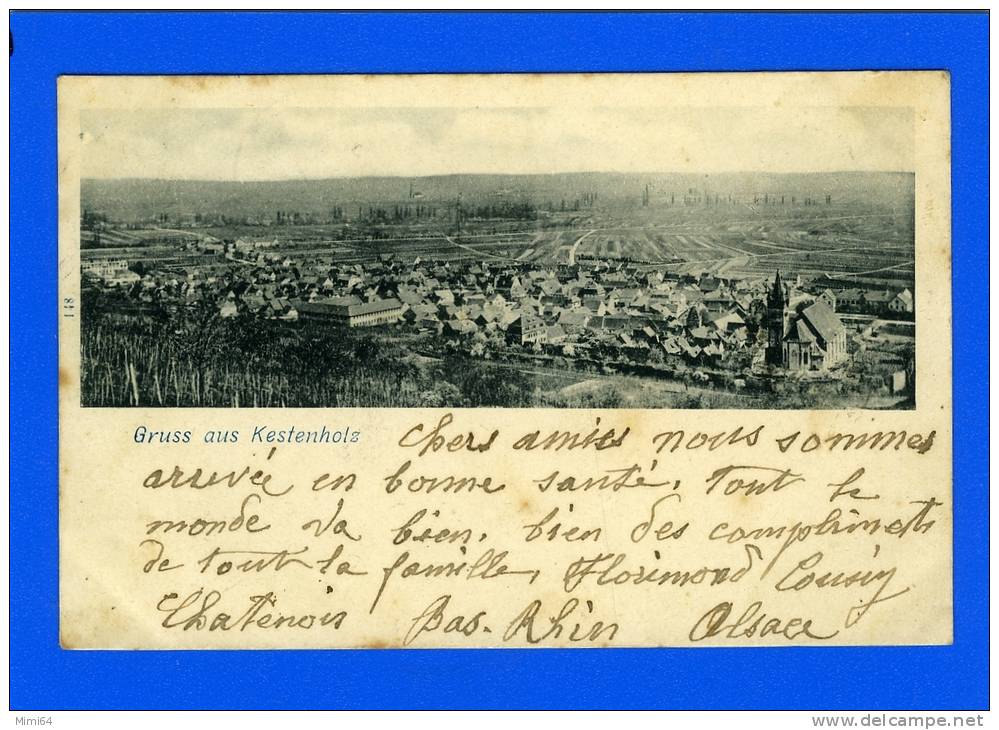 148
Gruss aus Kestenholz
chers amies nous sommes
arrivée en bonne santé, Tout le
monde va bien, bien des compliments
de tout la famille, Florimond Cousin
Chatenois Bas-Rhin Alsace
Mimi64
www.delcampe.net